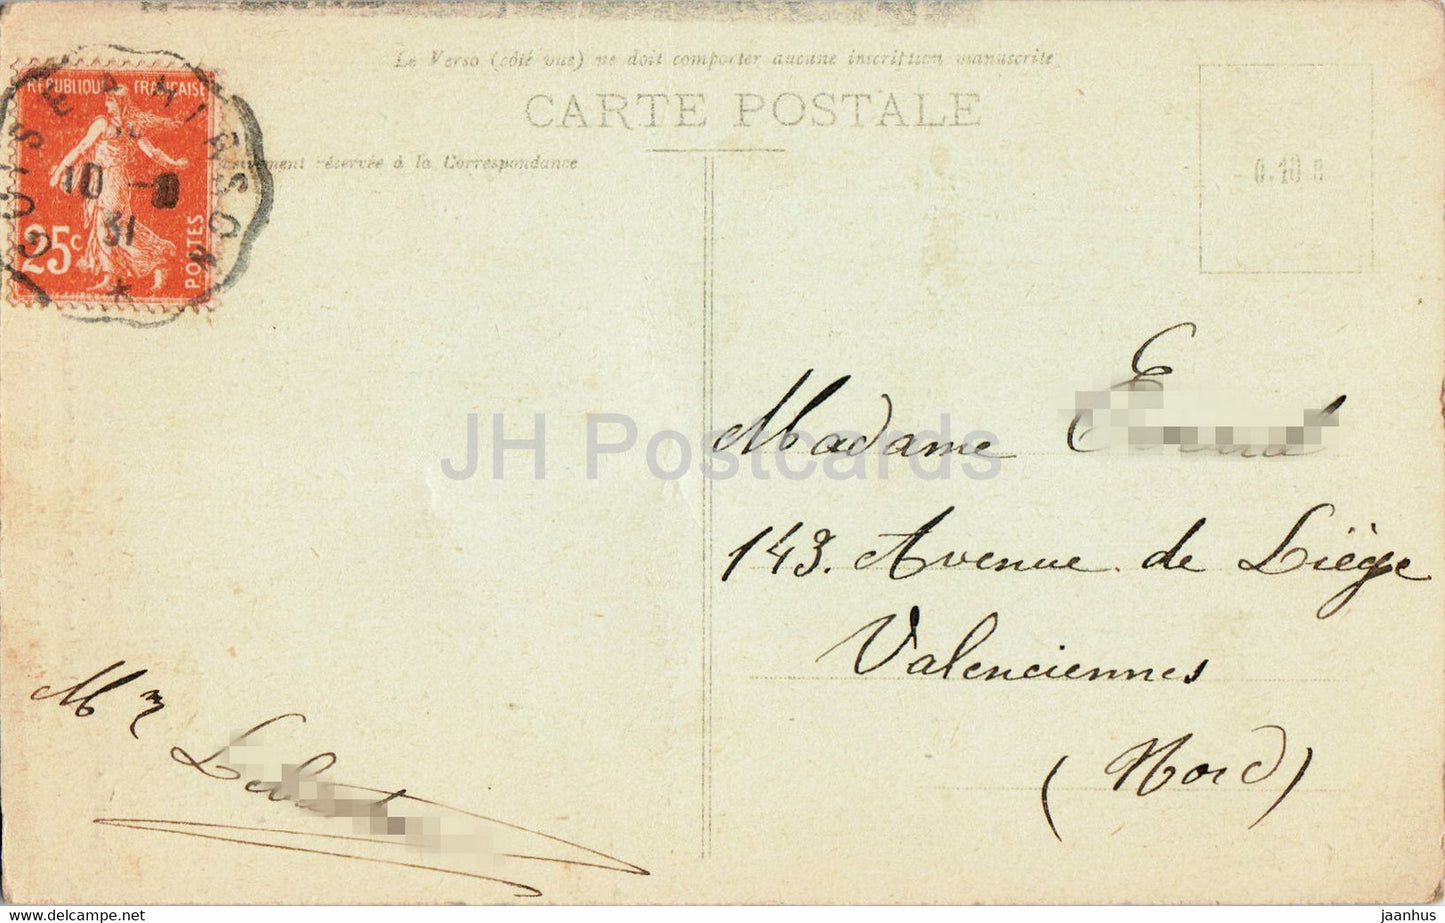 Le Verso (côté vue) ne doit comporter aucune inscrittion manuscrite
CARTE POSTALE
réservée à la Correspondance
REPUBLIQUE FRANÇAISE
10
31
25c
POSTES
0.10
JH Postcards
Madame
143. Avenue de Liège
Valenciennes
(Nord)
Mr
jaanhus
© delcampe.net